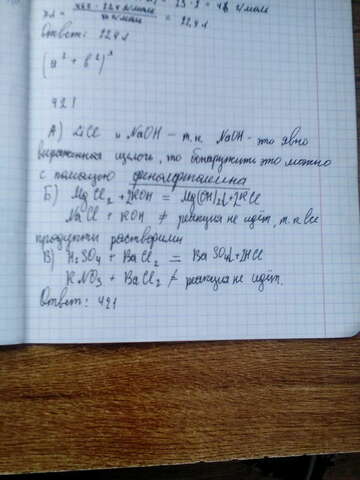 = 22,4 л
Ответ: 22,4 л
(a² + b²)
421
А) LiCl и NaOH – т.к. NaOH - это явно
выраженная щелочь, то обнаружить это можно
с помощью фенолфталеина
Б) MgCl₂ + 2KOH = Mg(OH)₂↓+2KCl
NaCl + KOH ≠ реакция не идёт, т.к все
продукты растворимы
В) H₂SO₄ + BaCl₂ = BaSO₄↓+2HCl
KNO₃ + BaCl₂ ≠ реакция не идёт.
Ответ: 421